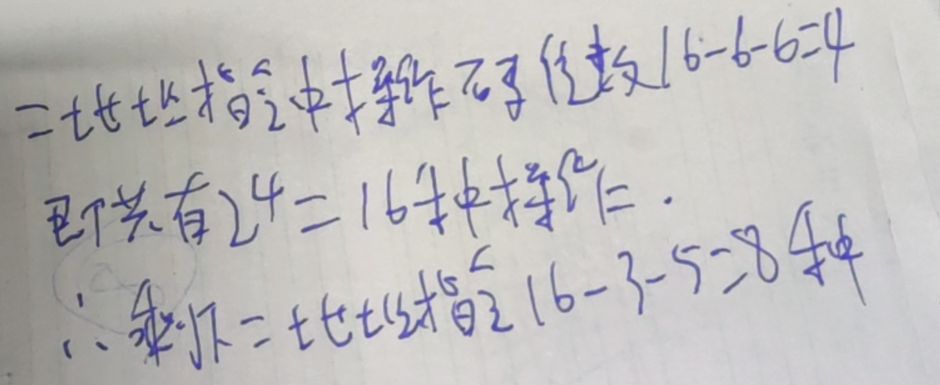 二地址指令中操作码位数16-6-6=4
即共有2⁴=16种操作.
∴剩下二地址指令16-3-5=8种